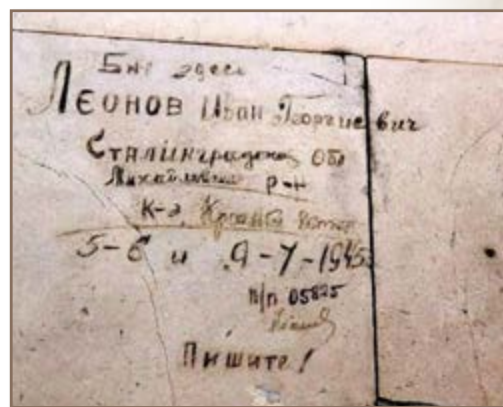 Был здесь
ЛЕОНОВ Иван Георгиевич
Сталинградская обл
Михайловский р-н
К-з, Красный
5-6 и 9-7-1945
п/п 05825
Пишите!